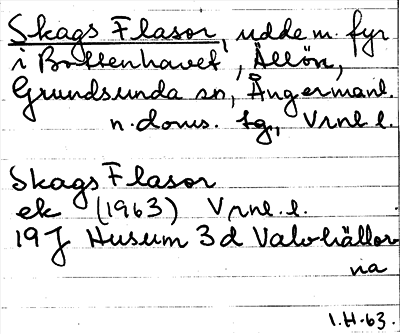 Skags Flasor, udde m. fyr
i Bottenhavet, Ällön,
Grundsunda sn, Ångermanl.
n. doms. sg, Vrnl l.
Skags Flasor
ek (1963) Vrnl. l.
19J Husum 3d Valvhällor
na
1.H.63.